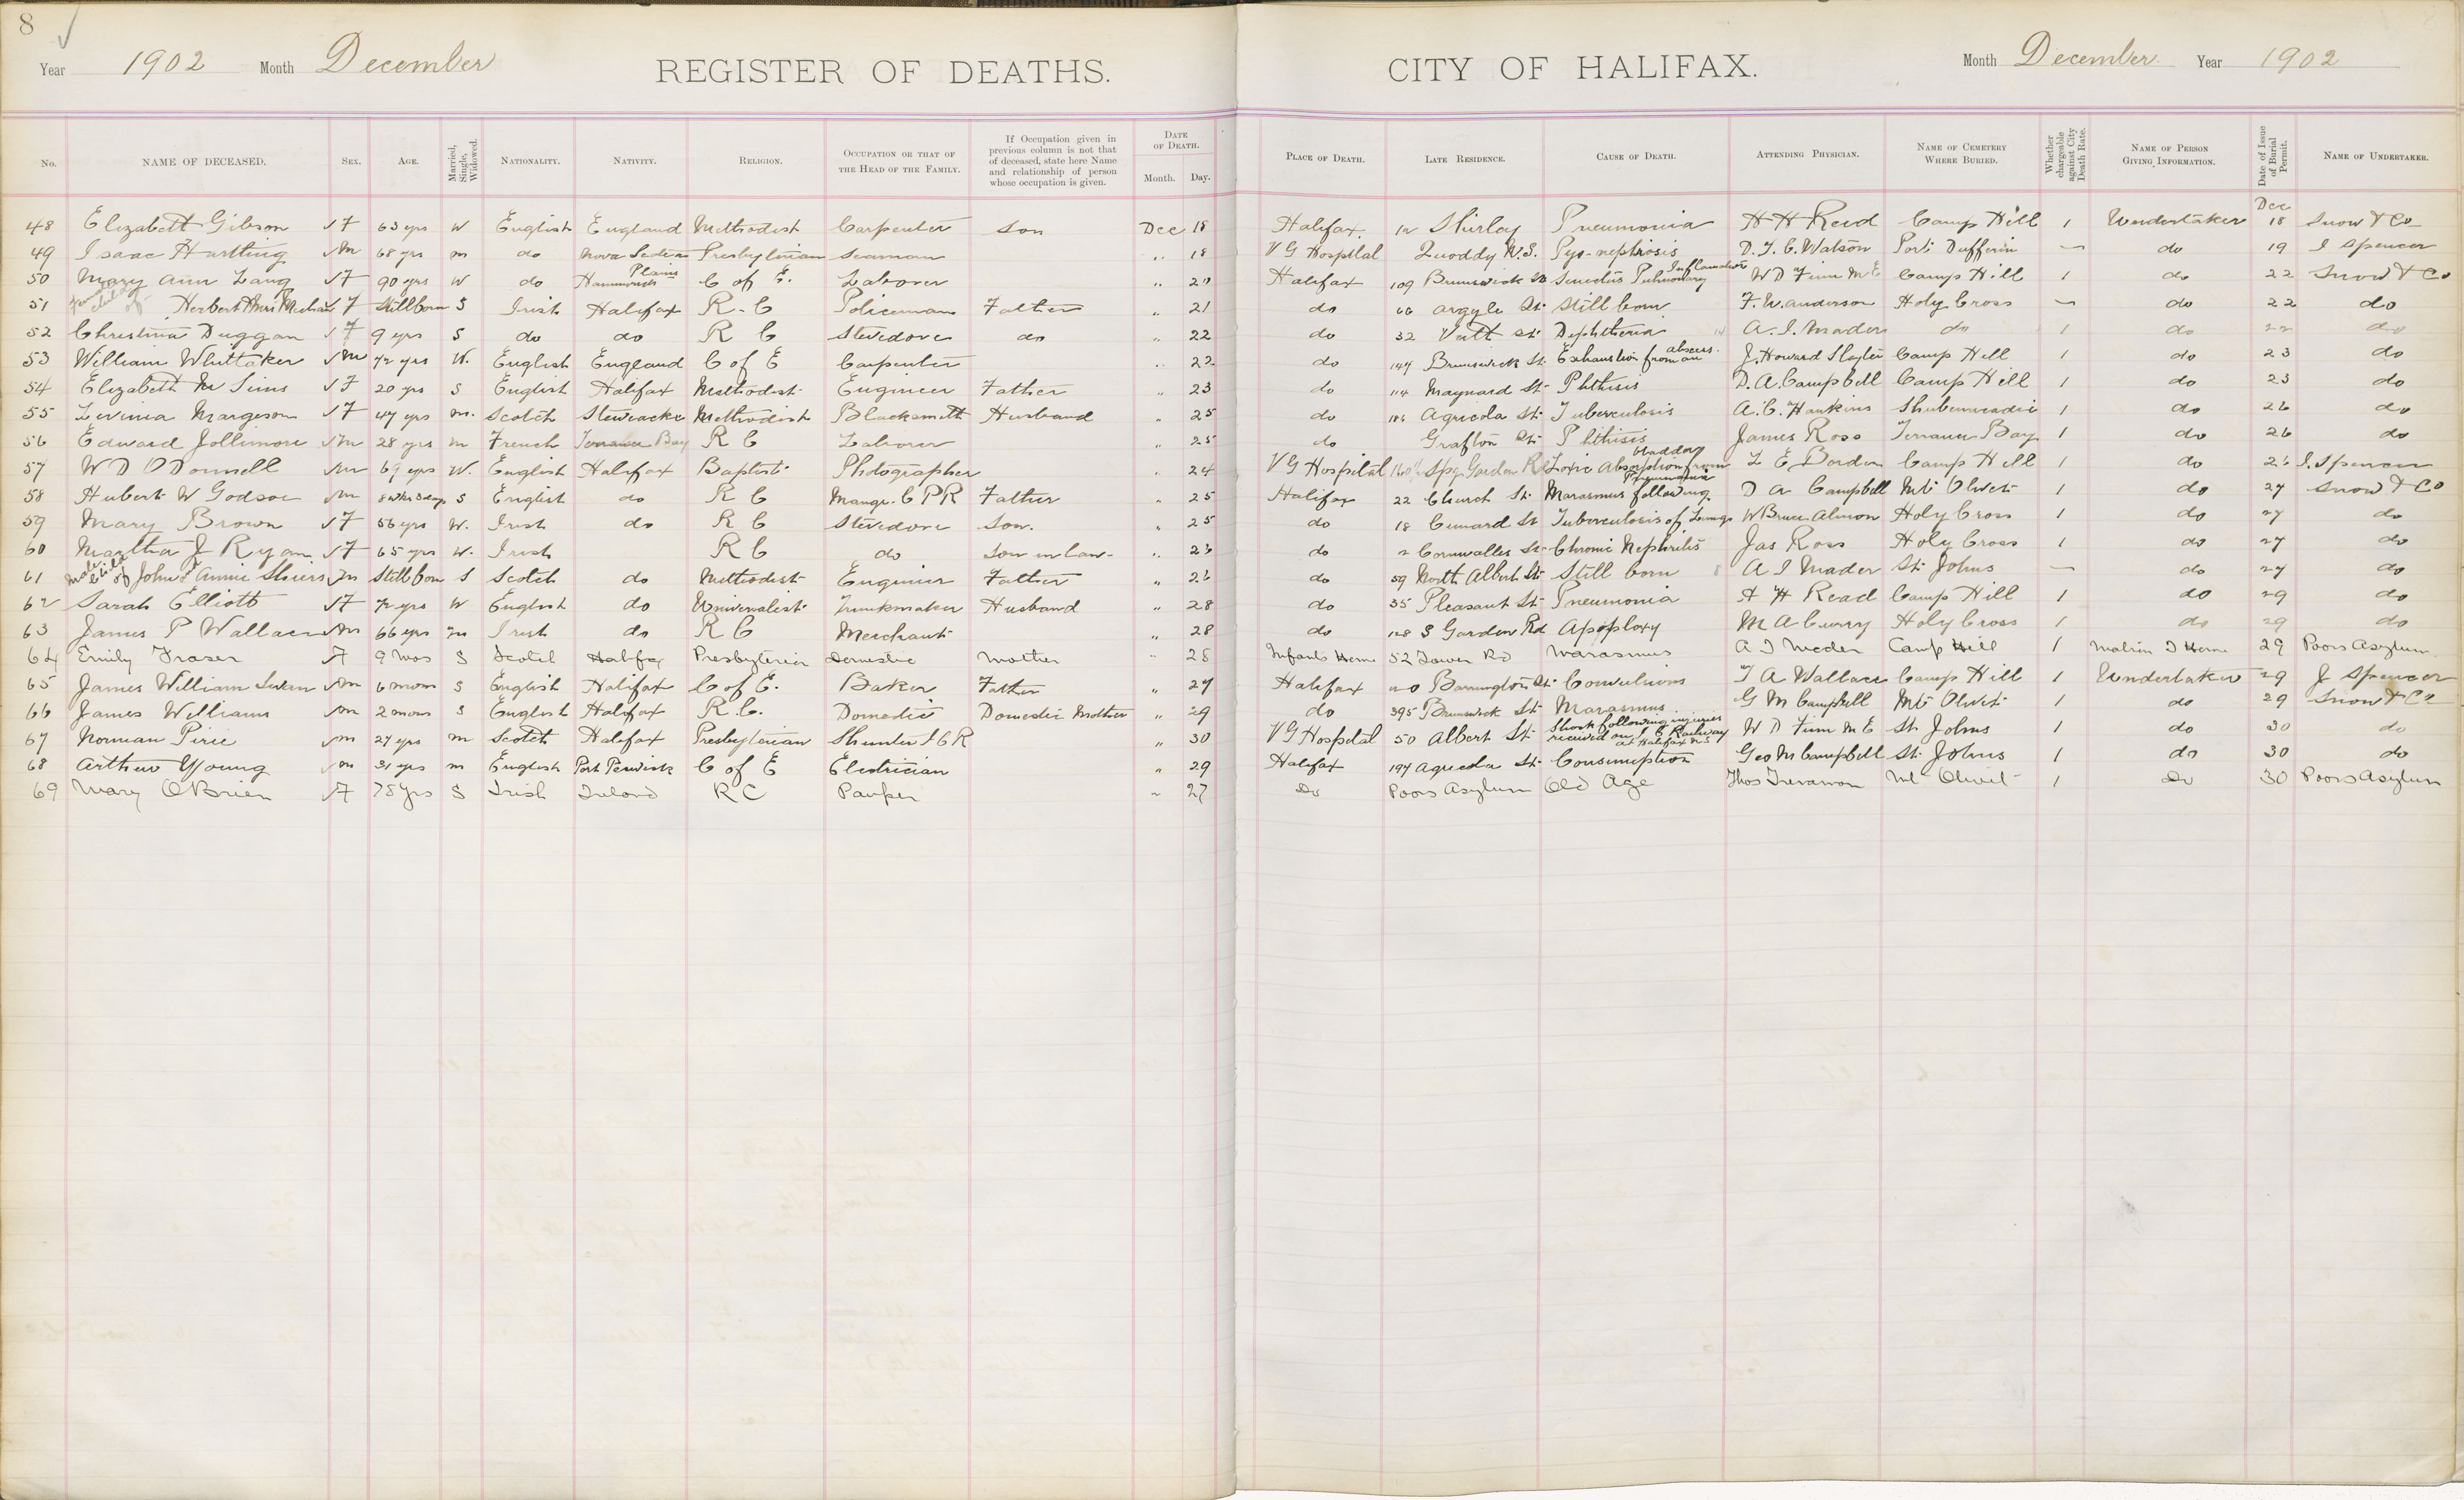 8
Year 1902 Month December REGISTER OF DEATHS. CITY OF HALIFAX. Month December Year 1902
No. NAME OF DECEASED. SEX. AGE. Married, Single, Widowed. NATIONALITY. NATIVITY. RELIGION. OCCUPATION OR THAT OF THE HEAD OF THE FAMILY. If Occupation given in previous column is not that of deceased, state here Name and relationship of person whose occupation is given. DATE OF DEATH. Month. Day. PLACE OF DEATH. LATE RESIDENCE. CAUSE OF DEATH. ATTENDING PHYSICIAN. NAME OF CEMETERY WHERE BURIED. Whether chargeable against City Death Rate. NAME OF PERSON GIVING INFORMATION. Date of Issue of Burial Permit. NAME OF UNDERTAKER.
48 Elizabeth Gibson F 63 yrs W English England Methodist Carpenter Son Dec 18 Halifax. 12 Shirley Pneumonia H H Read Camp Hill 1 Undertaker Dec 18 Snow & Co
49 Isaac Hartling M 68 yrs m do Nova Scotia Presbyterian Seaman " 18 V G Hospital Quoddy N.S. Pyo-nephrosis D. T. C. Watson Port Dufferin — do 19 J Spencer
50 Mary Ann Lang F 90 yrs W do Hammonds Plains C of E. Laborer " 20 Halifax 109 Brunswick St Senectus Pulmonary Inflamation W D Finn M E Camp Hill 1 do 22 Snow & Co
51 Female child of Herbert F Stillborn S Irish Halifax R-C Policeman Father " 21 do 66 Argyle St. Still born F. W. Anderson Holy Cross — do 22 do
52 Christina Duggan F 9 yrs S do do R C Stevedore do " 22 do 32 St. Diphtheria A. I. Mader do 1 do 22 do
53 William Whittaker M 72 yrs W. English England C of E Carpenter " 22 do 147 Brunswick St. Exhaustion from an abscess. J. Howard Slayter Camp Hill 1 do 23 do
54 Elizabeth M Sims F 20 yrs S English Halifax Methodist Engineer Father " 23 do 114 Maynard St. Phthisis D. A. Campbell Camp Hill 1 do 23 do
55 Levinia Margeson F 47 yrs m. Scotch Stewiacke Methodist Blacksmith Husband " 25 do Agricola St. Tuberculosis A. C. Hawkins Shubenacadie 1 do 26 do
56 Edward Jollimore M 28 yrs m French Terrance Bay R C Laborer " 25 do Grafton St. Phthisis James Ross Terrance Bay 1 do 26 do
57 W D O'Donnell M 69 yrs W. English Halifax Baptist Photographer " 24 V G Hospital Spg Garden Rd Toxic Absorption from bladder L E Borden Camp Hill 1 do 26 J. Spencer
58 Hubert W Godsoe M 8 wks 3 days S English do R C Mangr. C P R Father " 25 Halifax 22 Church St. Marasmus following Pneumonia D A Campbell Mt Olivet 1 do 27 Snow & Co
59 Mary Brown F 56 yrs W. Irish do R C Stevedore Son. " 25 do 18 Cunard St Tuberculosis of Lungs W Bruce Almon Holy Cross 1 do 27 do
60 Martha J Ryan F 65 yrs W. Irish R C do Son in law " 26 do 2 Cornwallis St. Chronic Nephritis Jas Ross Holy Cross 1 do 27 do
61 Male child of John & Annie Shiers M Still born S Scotch do Methodist Engineer Father " 26 do 59 North Albert St. Still born A I Mader St. Johns — do 27 do
62 Sarah Elliott F 72 yrs W English do Universalist Trunkmaker Husband " 28 do 35 Pleasant St. Pneumonia H H Read Camp Hill 1 do 29 do
63 James P Wallace M 66 yrs m Irish do R C Merchant " 28 do 128 S Garden Rd Apoplexy M A Curry Holy Cross 1 do 29 do
64 Emily Fraser F 9 mos S Scotch Halifax Presbyterian Domestic Mother " 28 Infants Home 52 Tower Rd Marasmus A I Mader Camp Hill 1 Matron I Home 29 Poors Asylum
65 James William Swan M 6 mons S English Halifax C of E. Baker Father " 27 Halifax Barrington St. Convulsions T A Wallace Camp Hill 1 Undertaker 29 J Spencer
66 James Williams M 2 mons S English Halifax R. C. Domestic Domestic Mother " 29 do 395 Brunswick St. Marasmus G M Campbell Mt Olivet 1 do 29 Snow & Co
67 Norman Pirie M 27 yrs m Scotch Halifax Presbyterian Shunter I C R " 30 V G Hospital 50 Albert St. Shock following injuries received on I C Railway at Halifax N S W D Finn M E St. Johns 1 do 30 do
68 Arthur Young m 31 yrs m English C of E Electrician " 29 Halifax 194 Agricola St. Consumption Geo M Campbell St. Johns 1 do 30 do
69 Mary O'Brien F 78 yrs S Irish Ireland R C Pauper " 27 Do Poors Asylum Old Age Thos Trenaman Mt Olivet 1 Do 30 Poors Asylum